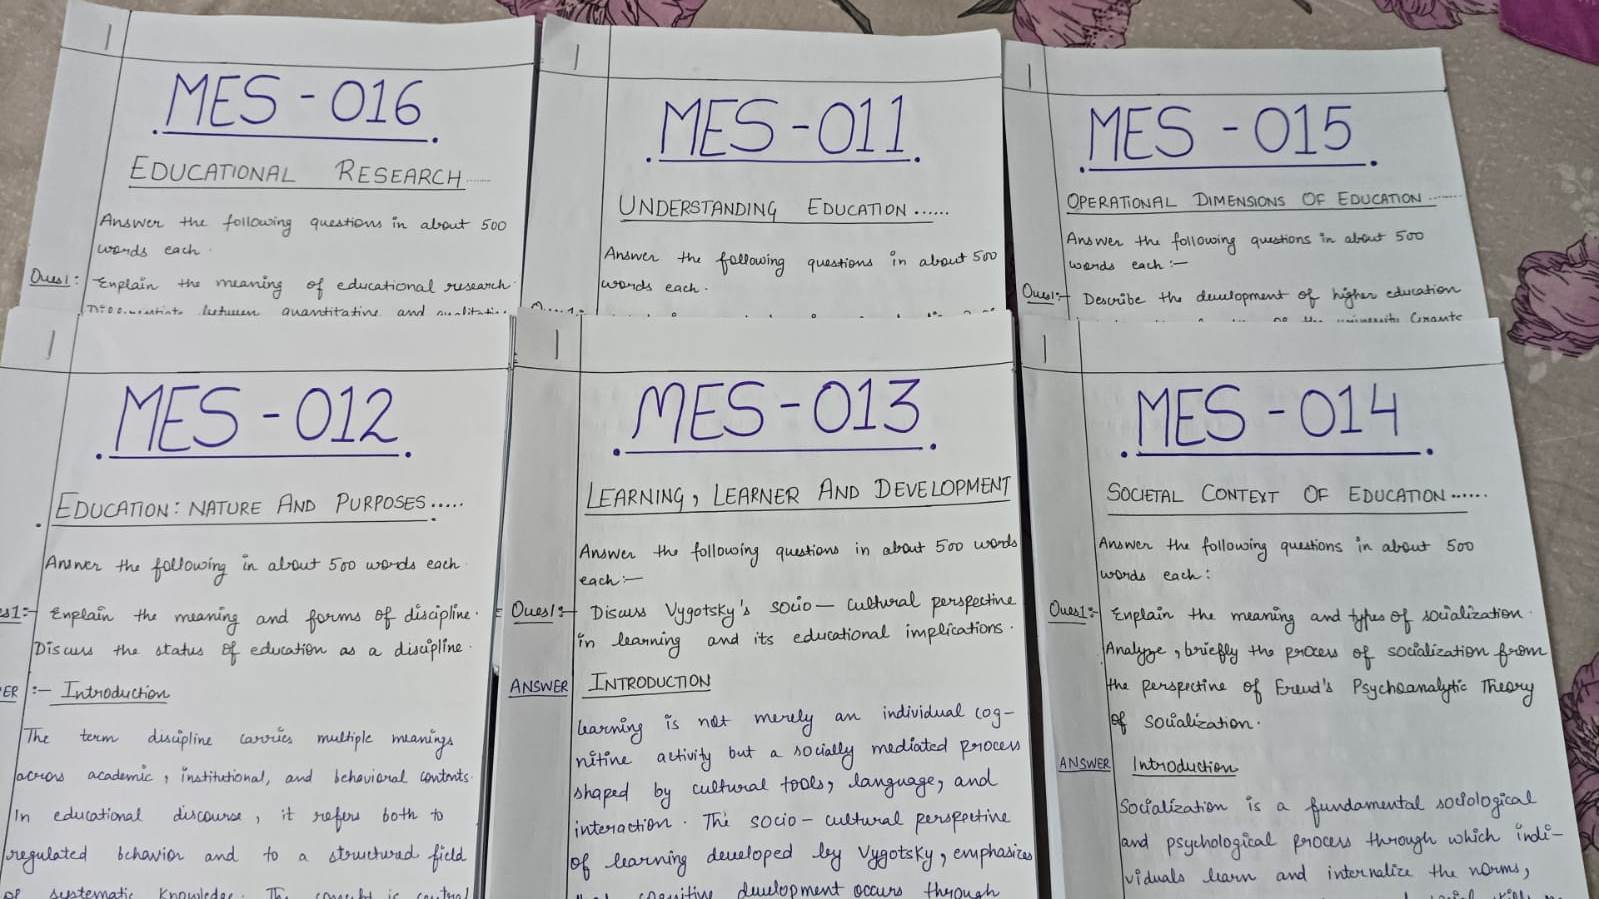 MES - 016
EDUCATIONAL RESEARCH......
Answer the following questions in about 500
words each.
Ques1: Explain the meaning of educational research.
between quantitative and
MES - 011
UNDERSTANDING EDUCATION......
Answer the following questions in about 500
words each.
MES - 015
OPERATIONAL DIMENSIONS OF EDUCATION.......
Answer the following questions in about 500
words each:-
Ques1:- Describe the development of higher education
of the university Grants
MES - 012
EDUCATION: NATURE AND PURPOSES.....
Answer the following in about 500 words each.
es1:- Explain the meaning and forms of discipline.
Discuss the status of education as a discipline.
ER :- Introduction
The term discipline carries multiple meanings
across academic, institutional, and behavioral contexts.
In educational discourse, it refers both to
regulated behavior and to a structured field
of systematic knowledge. The concept is central
MES - 013
LEARNING, LEARNER AND DEVELOPMENT
Answer the following questions in about 500 words
each:-
Ques1:- Discuss Vygotsky's socio - cultural perspective
in learning and its educational implications.
ANSWER INTRODUCTION
Learning is not merely an individual cog-
nitive activity but a socially mediated process
shaped by cultural tools, language, and
interaction. The socio - cultural perspective
of learning developed by Vygotsky, emphasizes
that cognitive development occurs through
MES - 014
SOCIETAL CONTEXT OF EDUCATION......
Answer the following questions in about 500
words each:
Ques1:- Explain the meaning and types of socialization.
Analyze, briefly the process of socialization from
the perspective of Freud's Psychoanalytic Theory
of socialization.
ANSWER Introduction
Socialization is a fundamental sociological
and psychological process through which indi-
viduals learn and internalize the norms,